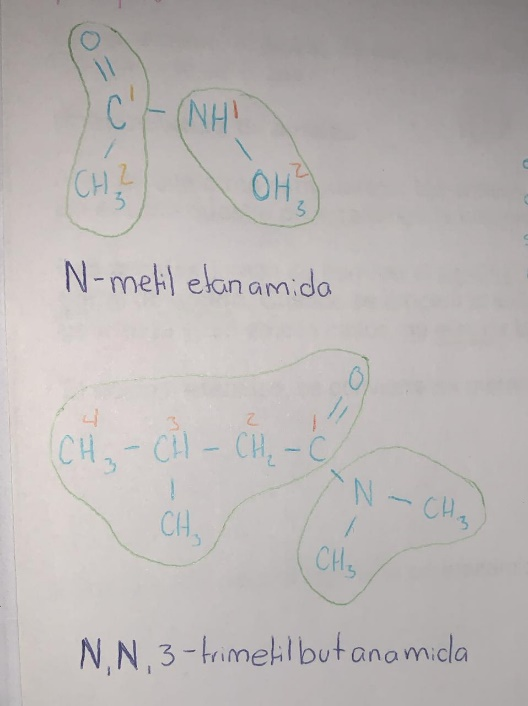 O
||
C 1 - NH 1
/ \
CH3 2 OH3 2
N-metil etanamida
O
4 3 2 1 //
CH3 - CH - CH2 - C
| \
CH3 N - CH3
/
CH3
N,N,3-trimetilbutanamida